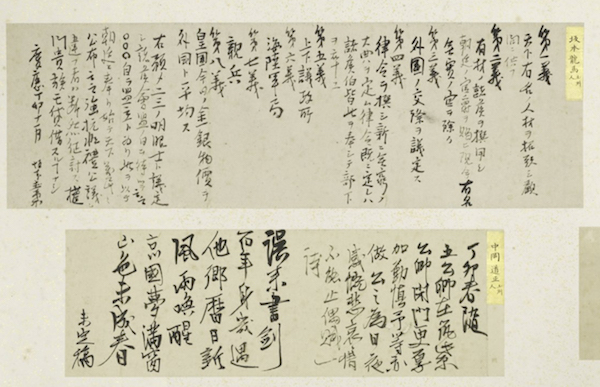 坂本龍馬
第一義
天下有名ノ人材ヲ招致シ顧
問ニ供フ
第二義
有材ノ諸侯ヲ撰用シ
朝廷ノ官爵ヲ賜ヒ現今有名
無実ノ官ヲ除ク
第三義
外国ノ交際ヲ議定ス
第四義
律令ヲ撰シ新ニ無窮ノ
大典ヲ定ム律令既ニ定レハ
諸侯伯皆此ヲ奉シテ部下
ヲ率ス
第五義
上下議政所
第六義
海陸軍局
第七義
親兵
第八義
皇国今日ノ金銀物價ヲ
外国ト平均ス
右預メ二三ノ明眼士ト議定
シ諸侯會盟ノ日ヲ待ツテ云云
○○○自ラ盟主ト為リ此ヲ以テ
朝廷ニ奉リ始テ天下萬民ニ
公布云云強抗非禮公議ニ
違フ者ハ断然征討ス權
門貴族モ貸借スルヿナシ
慶應丁卯十一月 坂本直柔
中岡
丁卯春随
五公卿在筑紫
公卿閉門更専
加勤慎予等亦
倣公之為日夜
慷慨悲哀惜
不能止偶賦一
詩
誤来書剣
百年身幾遇
他郷暦日新
風雨喚醒
京國夢満窗
山色未成春
未定稿